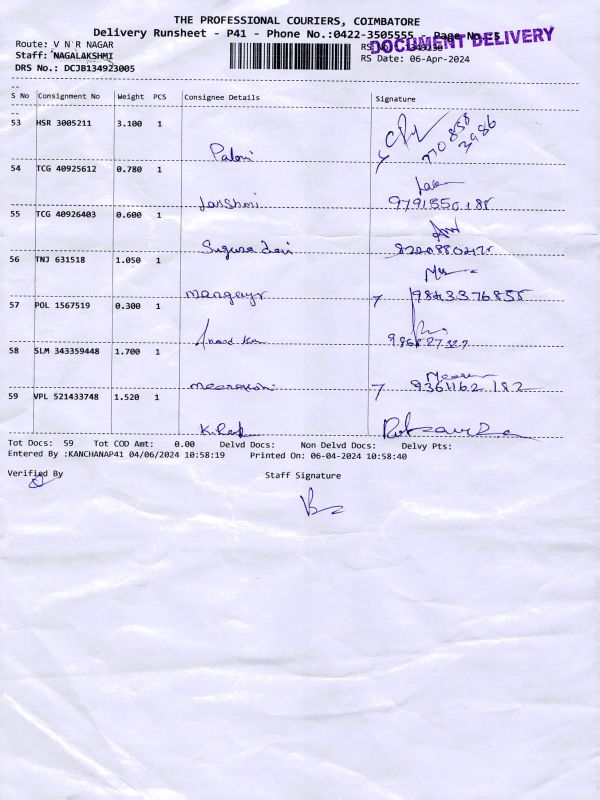 THE PROFESSIONAL COURIERS, COIMBATORE
Delivery Runsheet - P41 - Phone No.:0422-3505555 Page No.:5
DOCUMENT DELIVERY
Route: V N R NAGAR
Staff: NAGALAKSHMI
RS Date: 06-Apr-2024
DRS No.: DCJB134923005
S No Consignment No Weight PCS Consignee Details Signature
53 HSR 3005211 3.100 1
770 858 3986
Palani
54 TCG 40925612 0.780 1
Lakshmi
55 TCG 40926403 0.600 1
Suguna devi
56 TNJ 631518 1.050 1
mangayr 7 9843376855
57 POL 1567519 0.300 1
58 SLM 343359448 1.700 1
7 9361162182
59 VPL 521433748 1.520 1
Tot Docs: 59 Tot COD Amt: 0.00 Delvd Docs: Non Delvd Docs: Delvy Pts:
Entered By :KANCHANAP41 04/06/2024 10:58:19 Printed On: 06-04-2024 10:58:40
Verified By Staff Signature